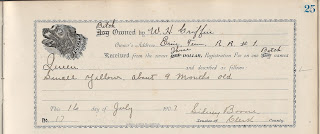 25
Bitch
Dog Owned by W. H. Griffin
Owner's Address, Erin, Tenn. R. R. # 1
Three Bitch
Received from the owner ONE DOLLAR, Registration Fee on one Dog named
Queen and described as follows
Small Yellow, about 9 Months old
No. 16 day of July
No. 17 Sidney Boone
Clerk